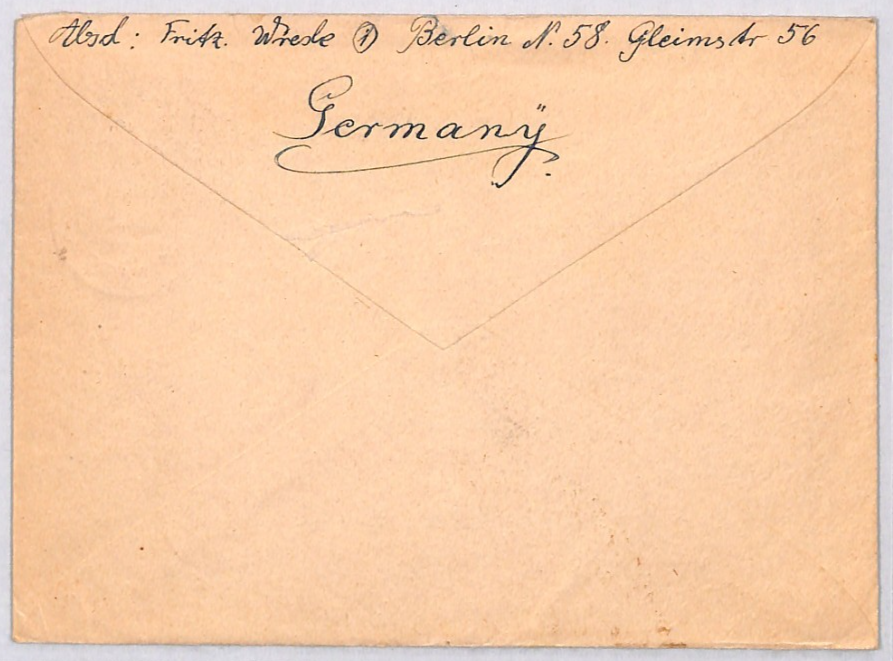 Absd: Fritz. Wrede ① Berlin N. 58. Gleimstr 56
Germanÿ.